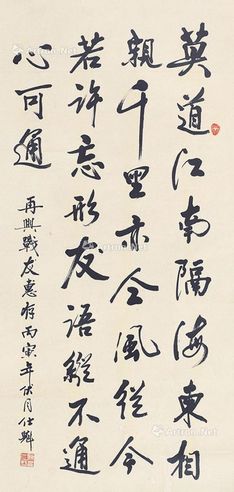 莫道江南隔海東相
親千里亦仝風從今
若許忘形友語縱不通
心可通
再興戰友惠存丙寅年伏月仕
Artron.Net